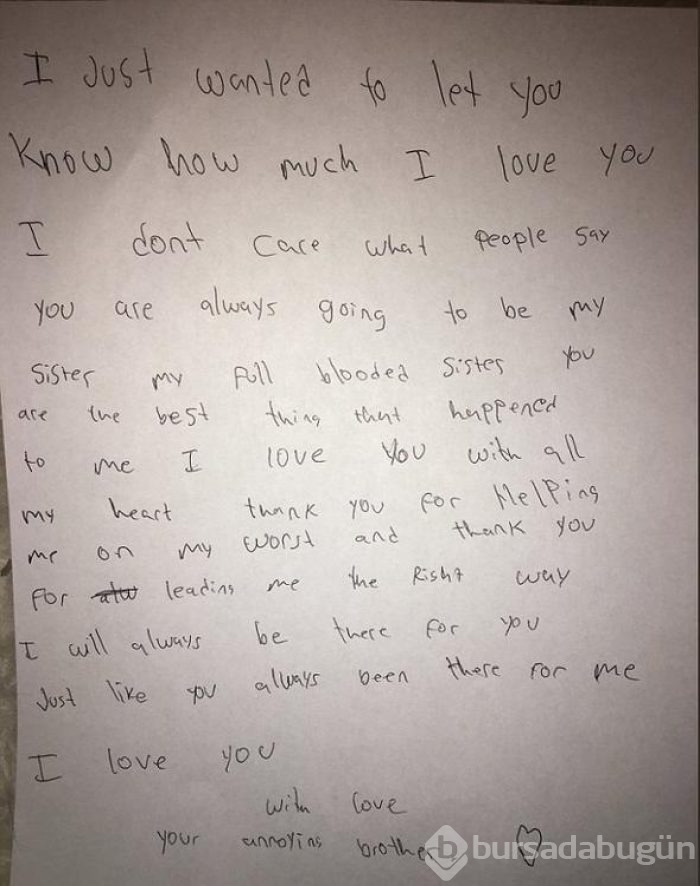 I Just wanted to let you
Know how much I love you
I dont care what people say
you are always going to be my
Sister my full blooded sister you
are the best thing that happened
to me I love you with all
my heart thank you for Helping
me on my worst and thank you
for leading me the Right way
I will always be there for you
Just like you always been there for me
I love you
with love
your annoying brother
b bursadabugün